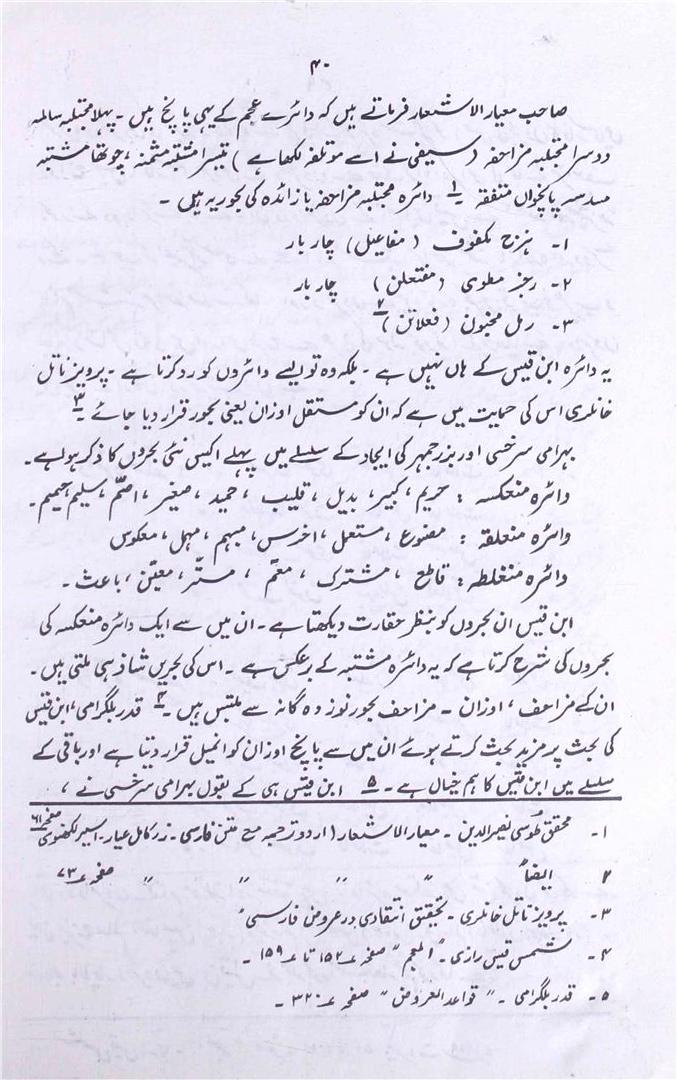 ۴۰
صاحب معیار الاشعار فرماتے ہیں کہ دائرے عجم کے یہی پانچ ہیں ۔ پہلا مجتلبہ سالمہ
دوسرا مجتلبہ مزاحفہ (سیفی نے اسے موتلفہ لکھا ہے) تیسرا مشتبہ مثمنہ ، چوتھا مشتبہ
مسدسہ پانچواں متفقہ ۱؎ دائرہ مجتلبہ مزاحفہ یا زائدہ کی بحور یہ ہیں ۔
۱۔ ہزج مکفوف (مفاعیل) چار بار
۲۔ رجز مطوی (مفتعلن) چار بار
۳۔ رمل مخبون (فعلاتن) ۲؎
یہ دائرہ ابن قیس کے ہاں نہیں ہے ۔ بلکہ وہ تو ایسے دائروں کو رد کرتا ہے ۔ پرویز ناتل
خانلری اس کی حمیت میں ہے کہ ان کو مستقل اوزان یعنی بحور قرار دیا جائے ۳؎
بہرامی سرخسی اور بزرجمہر کی ایجاد کے سلسلے میں پہلے اکیس نئی بحروں کا ذکر ہوا ہے۔
دائرہ منعکسہ : صریم ، کبیر ، بدیل ، قلیب ، حمید ، صغیر ، اصمّ ، سلیم ، حمیم ۔
دائرہ منعلقہ : مصنوع ، مستعمل ، اخرس ، مبہم ، مہمل ، معکوس
دائرہ منغلطہ : قاطع ، مشترک ، معمّم ، مستّر ، معیّن ، باعث ۔
ابن قیس ان بحروں کو بنظر حقارت دیکھتا ہے ۔ ان میں سے ایک دائرہ منعکسہ کی
بحروں کی شرح کرتا ہے کہ یہ دائرہ مشتبہ کے برعکس ہے ۔ اس کی بحریں شاذ ہی ملتی ہیں ۔
ان کے مزاحف ، اوزان ۔ مزاحف بحور نوزدہ گانہ سے ملتبس ہیں ۔ ۴؎ قدر بلگرامی ، ابن قیس
کی بحث پر مزید بحث کرتے ہوئے ان میں سے پانچ اوزان کو انمیل قرار دیتا ہے اور باقی کے
سلسلے میں ابن قیس کا ہم خیال ہے ۔ ۵؎ ابن قیس ہی کے بقول بہرامی سرخسی نے ،
۱۔ محقق طوسی نصیر الدین ۔ معیار الاشعار (اردو ترجمہ مع متن فارسی ۔ زر کامل عیار ۔ اسیر لکھنوی صفحہ ۶۱
۲ ایضاً " " " " " صفحہ ۷۳
۳۔ پرویز ناتل خانلری ۔ تحقیق انتقادی در عروض فارسی"
۴۔ شمس قیس رازی ۔ "المعجم" صفحہ ۱۵۲ تا ۱۵۹ ۔
۵۔ قدر بلگرامی ۔ "قواعد العروض" صفحہ ۳۲۰ ۔